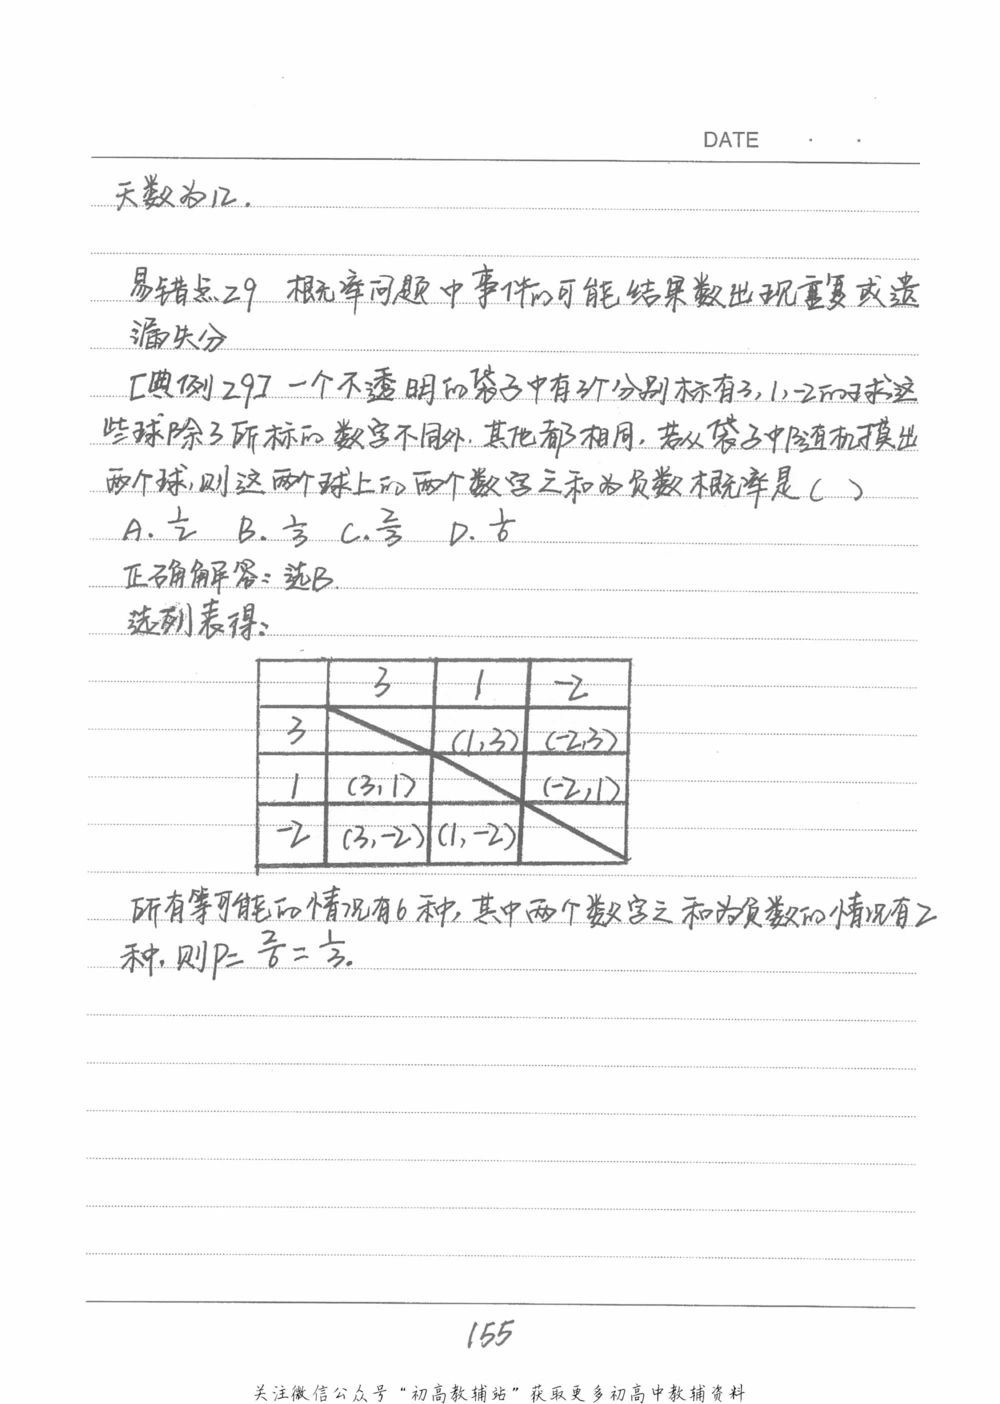 DATE · ·
天数为12.
易错点29 概率问题中事件的可能结果数出现重复或遗
漏失分
[典例29] 一个不透明的袋子中有3个分别标有3,1,-2的球这
些球除了所标的数字不同外,其他都相同,若从袋子中随机摸出
两个球,则这两个球上的两个数字之和为负数概率是( )
A. 1/2 B. 1/3 C. 2/3 D. 1/6
正确解答:选B.
选列表得:
3 1 -2
3 (1,3) (-2,3)
1 (3,1) (-2,1)
-2 (3,-2) (1,-2)
所有等可能的情况有6种,其中两个数字之和为负数的情况有2
种,则P= 2/6 = 1/3.
155
关注微信公众号“初高教辅站”获取更多初高中教辅资料